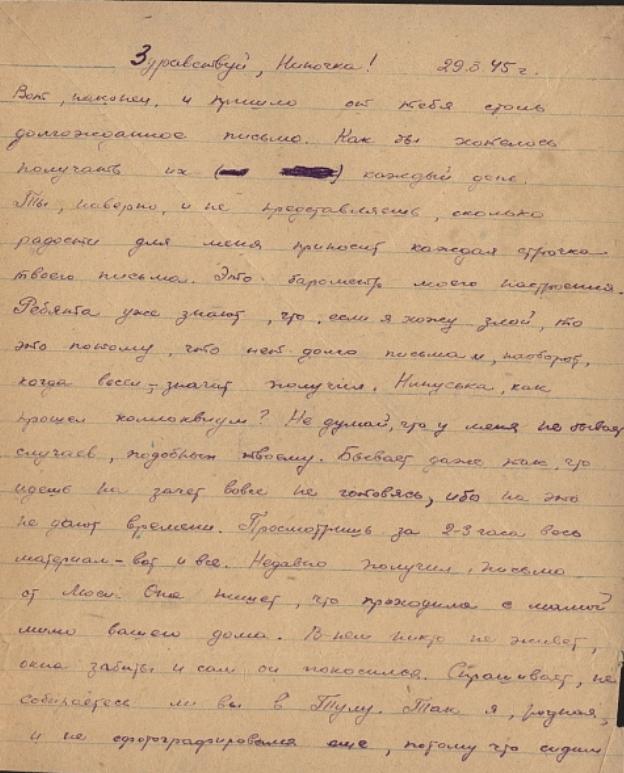 Здравствуй, Ниночка! 29.3.45 г.
Вот, наконец, и пришло от тебя столь
долгожданное письмо. Как бы хотелось
получать их каждый день.
Ты, наверно, и не представляешь, сколько
радости для меня приносит каждая строчка
твоего письма. Это барометр моего настроения.
Ребята уже знают, что, если я хожу злой, то
это потому, что нет долго письма и, наоборот,
когда весел, – значит получил. Нинуська, как
прошел коллоквиум? Не думай, что у меня не бывает
случаев, подобных твоему. Бывает даже так, что
идешь на зачет вовсе не готовясь, ибо на это
не дают времени. Просмотришь за 2-3 часа весь
материал – вот и все. Недавно получил письмо
от Люси. Она пишет, что проходила с мамой
мимо вашего дома. В нем никто не живет,
окна забиты и сам он покосился. Спрашивает, не
собираетесь ли вы в Тулу. Так я, родная,
и не сфотографировался еще, потому что сидим